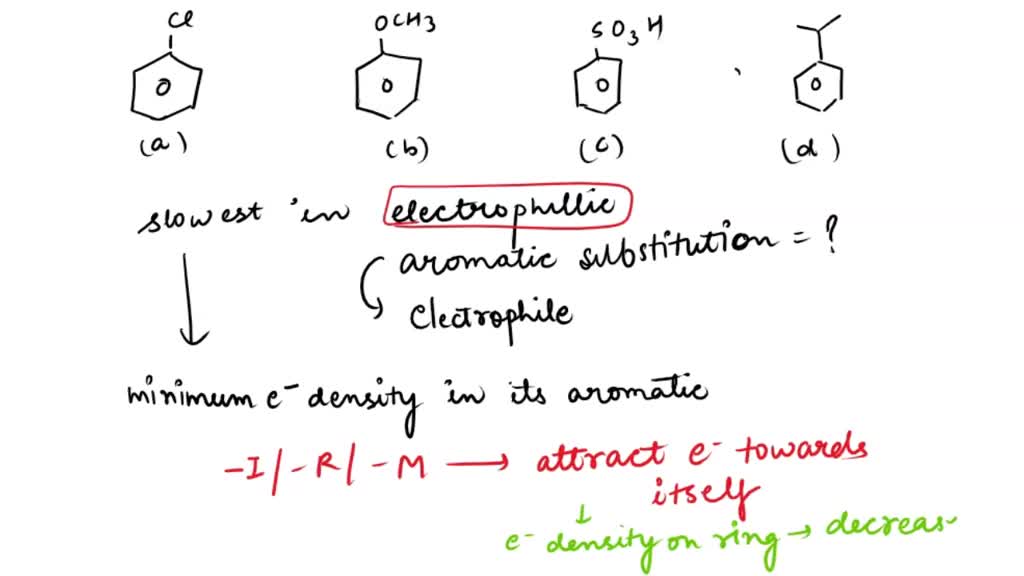 Cl OCH3 SO3H
(a) (b) (c) (d)
slowest in electrophillic
aromatic substitution = ?
Electrophile
minimum e- density in its aromatic
-I/-R/-M → attract e- towards
itself
↓
e- density on ring → decreas